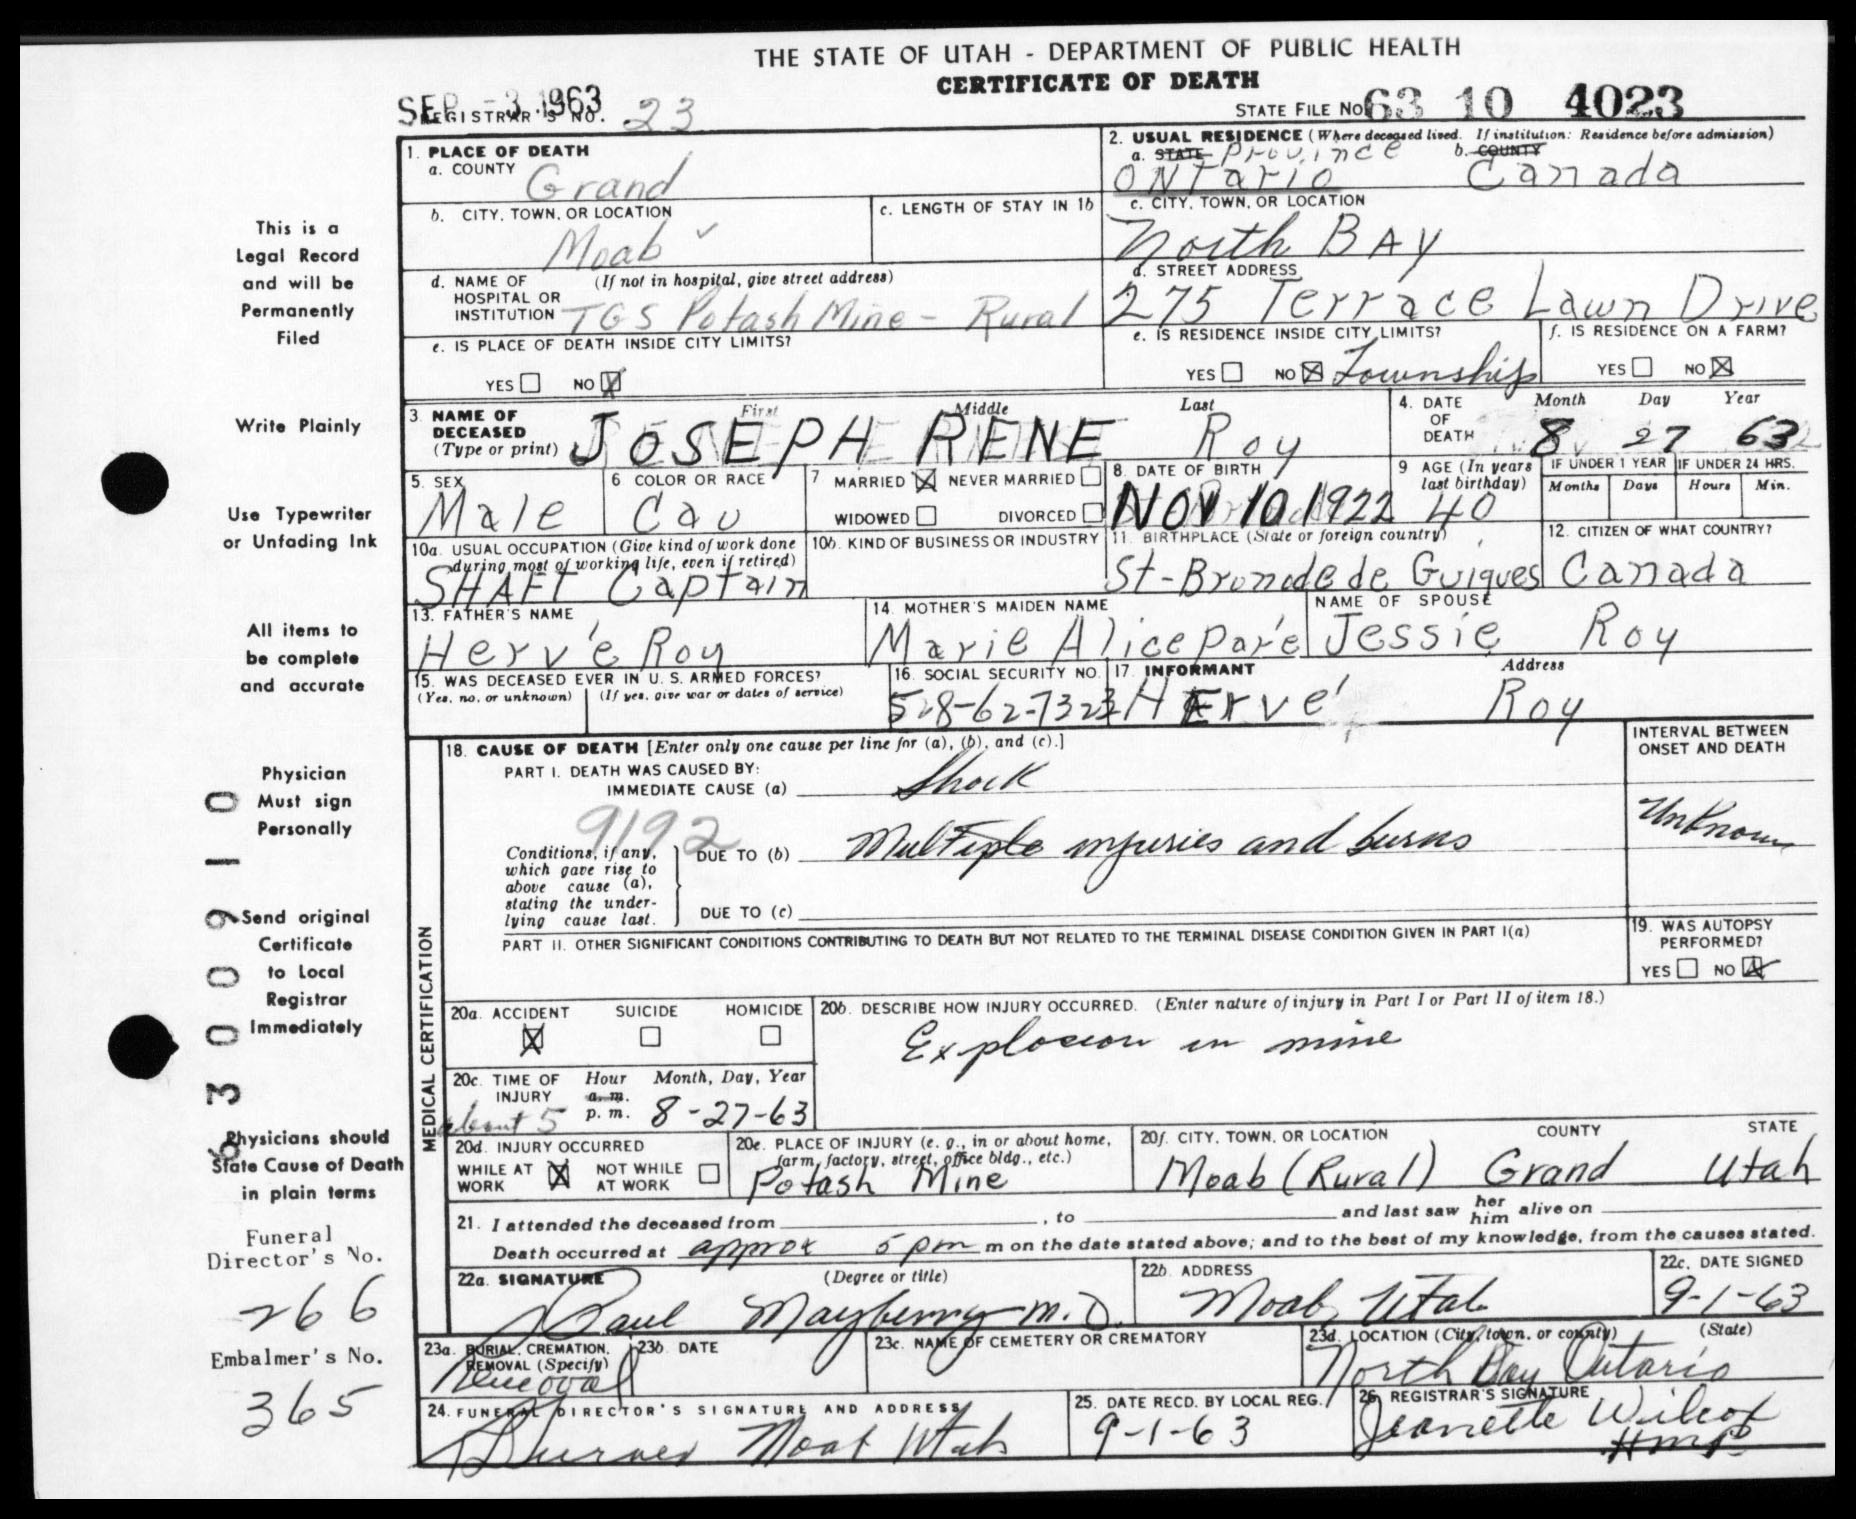 THE STATE OF UTAH - DEPARTMENT OF PUBLIC HEALTH
CERTIFICATE OF DEATH
SEP -3 1963
REGISTRAR'S NO. 23
STATE FILE NO 63 10 4023
1. PLACE OF DEATH
a. COUNTY Grand
2. USUAL RESIDENCE (Where deceased lived. If institution: Residence before admission)
a. STATE Province b. COUNTY
ONTario Canada
b. CITY, TOWN, OR LOCATION
Moab ✓
c. LENGTH OF STAY IN 1b
c. CITY, TOWN, OR LOCATION
North BAY
d. NAME OF HOSPITAL OR INSTITUTION (If not in hospital, give street address)
TGS Potash Mine - Rural
d. STREET ADDRESS
275 Terrace Lawn Drive
e. IS PLACE OF DEATH INSIDE CITY LIMITS?
YES NO X
e. IS RESIDENCE INSIDE CITY LIMITS?
YES NO X Township
f. IS RESIDENCE ON A FARM?
YES NO X
3. NAME OF DECEASED (Type or print)
First Middle Last
JOSEPH RENE Roy
4. DATE OF DEATH
Month Day Year
8 27 63
5. SEX
Male
6 COLOR OR RACE
Cau
7 MARRIED X NEVER MARRIED
WIDOWED DIVORCED
8. DATE OF BIRTH
NOV 10 1922
9 AGE (In years last birthday)
40
IF UNDER 1 YEAR
Months Days
IF UNDER 24 HRS.
Hours Min.
10a. USUAL OCCUPATION (Give kind of work done during most of working life, even if retired)
SHAFT Captain
10b. KIND OF BUSINESS OR INDUSTRY
11. BIRTHPLACE (State or foreign country)
St-Brunode de Guigues
12. CITIZEN OF WHAT COUNTRY?
Canada
13. FATHER'S NAME
Hervé Roy
14. MOTHER'S MAIDEN NAME
Marie Alice Paré
NAME OF SPOUSE
Jessie Roy
15. WAS DECEASED EVER IN U. S. ARMED FORCES?
(Yes, no, or unknown) (If yes, give war or dates of service)
16. SOCIAL SECURITY NO.
528-62-7323
17. INFORMANT Address
HErvé Roy
MEDICAL CERTIFICATION
18. CAUSE OF DEATH [Enter only one cause per line for (a), (b), and (c).]
PART I. DEATH WAS CAUSED BY:
IMMEDIATE CAUSE (a) Shock
9192
Conditions, if any, which gave rise to above cause (a), stating the underlying cause last.
DUE TO (b) Multiple injuries and burns
DUE TO (c)
INTERVAL BETWEEN ONSET AND DEATH
Unknown
PART II. OTHER SIGNIFICANT CONDITIONS CONTRIBUTING TO DEATH BUT NOT RELATED TO THE TERMINAL DISEASE CONDITION GIVEN IN PART I(a)
19. WAS AUTOPSY PERFORMED?
YES NO X
20a. ACCIDENT SUICIDE HOMICIDE
X
20b. DESCRIBE HOW INJURY OCCURRED. (Enter nature of injury in Part I or Part II of item 18.)
Explosion in mine
20c. TIME OF INJURY Hour Month, Day, Year
a. m.
about 5 p. m. 8-27-63
20d. INJURY OCCURRED
WHILE AT WORK X NOT WHILE AT WORK
20e. PLACE OF INJURY (e. g., in or about home, farm, factory, street, office bldg., etc.)
Potash Mine
20f. CITY, TOWN, OR LOCATION COUNTY STATE
Moab (Rural) Grand Utah
21. I attended the deceased from , to and last saw her him alive on
Death occurred at approx 5 pm m on the date stated above; and to the best of my knowledge, from the causes stated.
22a. SIGNATURE (Degree or title)
Paul Mayberry M.D.
22b. ADDRESS
Moab, Utah
22c. DATE SIGNED
9-1-63
23a. BURIAL, CREMATION, REMOVAL (Specify)
Removal
23b. DATE
23c. NAME OF CEMETERY OR CREMATORY
23d. LOCATION (City, town, or county) (State)
North Bay Ontario
24. FUNERAL DIRECTOR'S SIGNATURE AND ADDRESS
Moab Utah
25. DATE RECD. BY LOCAL REG.
9-1-63
26. REGISTRAR'S SIGNATURE
Jeanette Wilcox
This is a
Legal Record
and will be
Permanently
Filed
Write Plainly
Use Typewriter
or Unfading Ink
All items to
be complete
and accurate
Physician
Must sign
Personally
Send original
Certificate
to Local
Registrar
Immediately
Physicians should
State Cause of Death
in plain terms
63 009 10
Funeral
Director's No.
266
Embalmer's No.
365